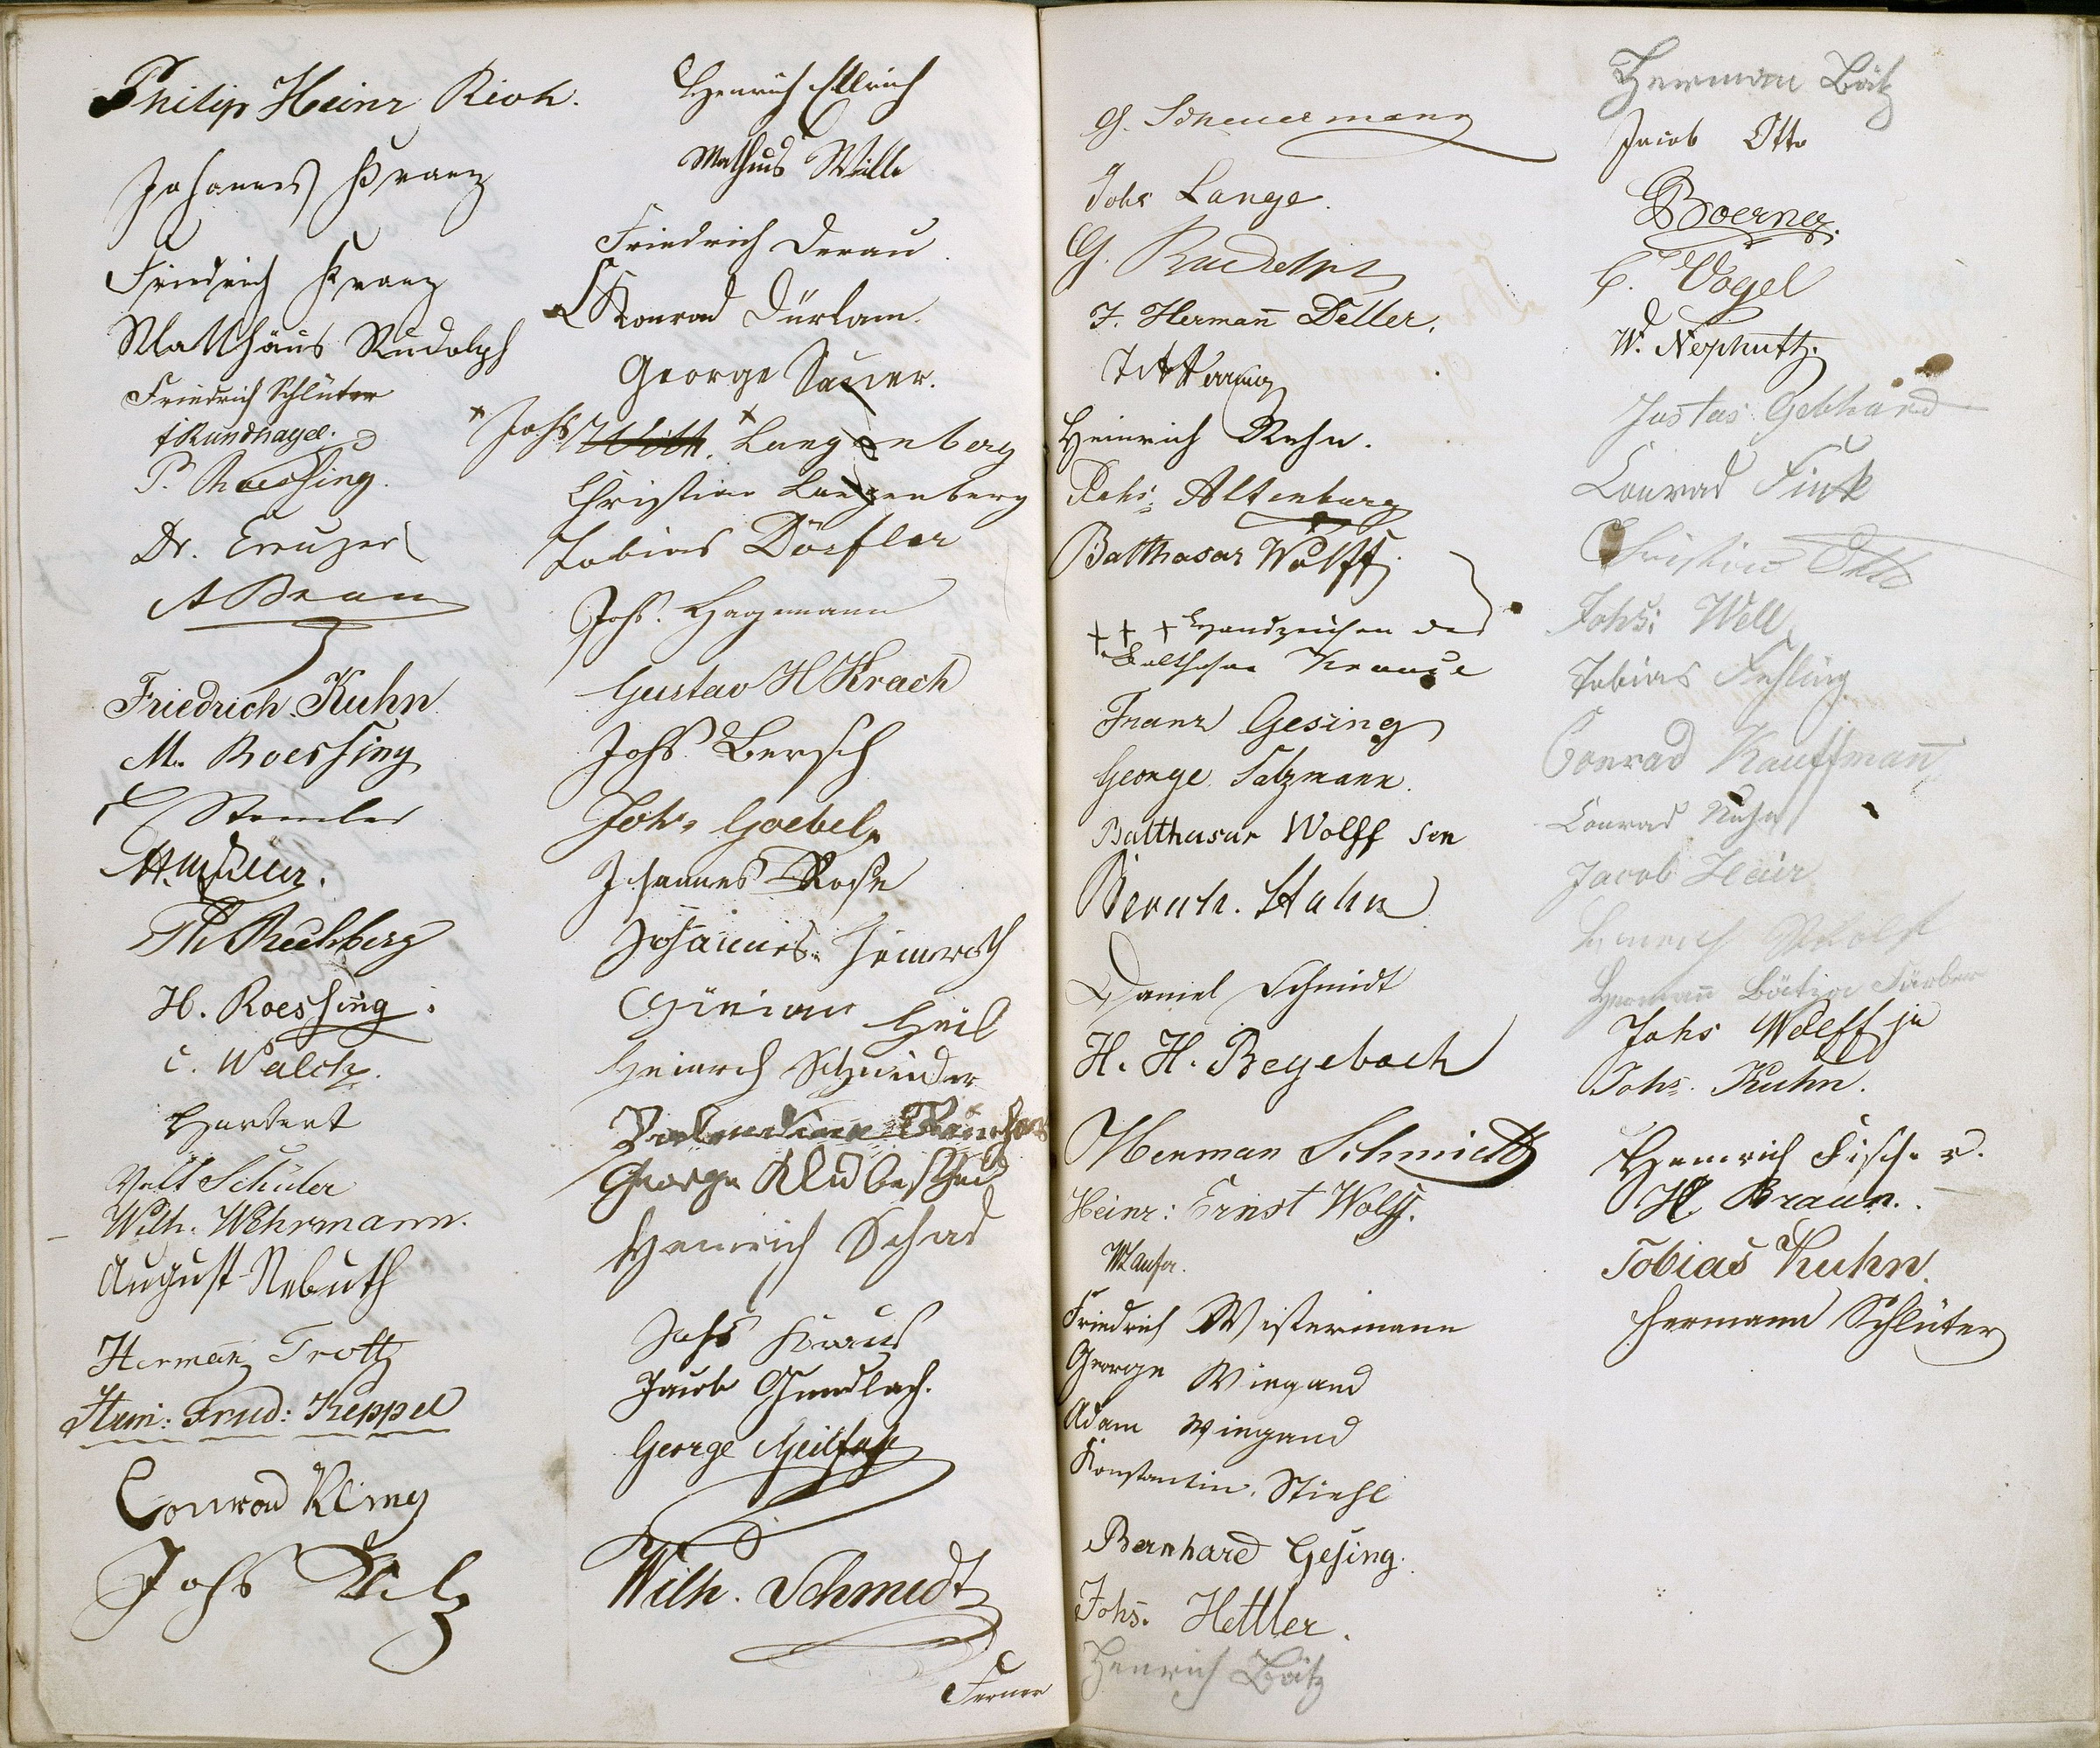 Philip Heinr Rioh.
Johannes Franz
Friedrich Franz
Matthäus Rudolph
Friedrich Schlüter
Rundnagel.
P. Roessing.
Dr. Creuzer
A Braun
Friedrich Kuhn
M. Roessing
Stemler
Th Rechberg
H. Roessing.
C. Walch.
Hartert
Valt Schüler
Wilh. Wehrmann.
August Nebuth
Hermañ Trott
Herm: Fried: Keppel
Conrad
Johs
Henrich Ellrich
Mathias Wille
Friedrich Derau.
Konrad Dürlam.
George Sauer.
Johs Witt. Langenberg
Christian Langenberg
Tobias Dörfler
Johs. Hagemann
Gustav H Krach
Johs Bersch
Johs Goebel
Johannes Rose
Johannes Heimroth
Heil
Heinrich Schneider
George
Heinrich Schad
Johs Kraus
Jacob Gundlach.
George Geilfus
Wilh. Schmidt
Ferner
G. Scheuermann
Johs Lange.
G. Rudolph
F. Hermañ Deller.
Heinrich Rehn.
Johs: Altenburg
Balthasar Wolff.
+ + + Handzeichen des
Balthasar Krause
Franz Gesing
George Salzmann.
Balthasar Wolff sen
Bernh. Hahn
Daniel Schmidt
H. H. Begebach
Herman Schmidt
Heinr: Ernst Wolff.
Friedrich Wistermann
George Wiegand
Adam Wiegand
Konstantin. Stiehl
Bernhard Gesing.
Johs. Hettler.
Henrich Bätz
Herman Bätz
Jacob Otto
Boerner.
C. Vogel
W. Nephuth.
Justus Gebhard
Conrad Fink
Christian Otto
Johs: Well
Tobias Fehling
Conrad Kauffmañ
Conrad Kuhn
Jacob Heir
Hermañ Bätza Färber
Johs Wolff ju
Johs. Kuhn.
Heinrich Fischer.
H. Braun.
Tobias Kuhn.
Hermann Schlüter